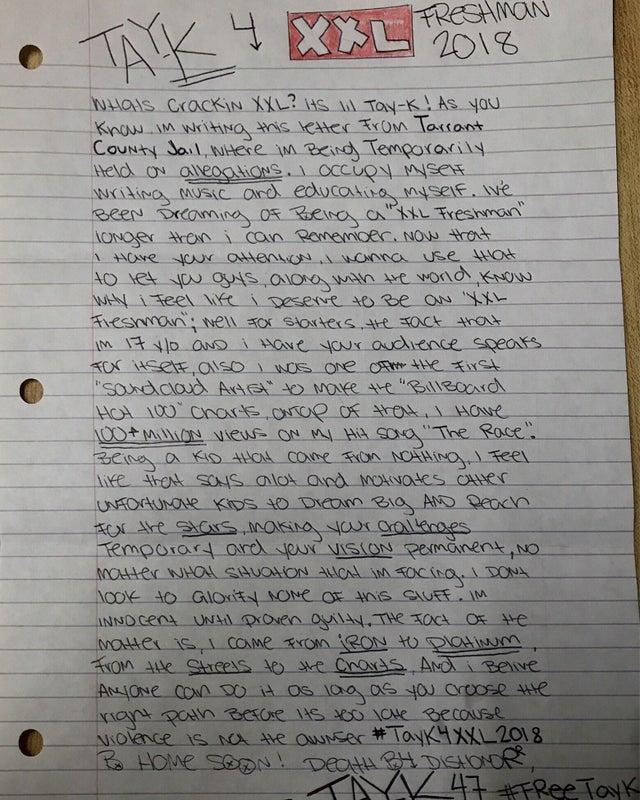 TAY-K 4 XXL FRESHMAN
2018
WHats Crackin XXL? Its lil Tay-K! As you
Know im writing this letter From Tarrant
County Jail, where im Being Temporarily
Held on allegations. I occupy myself
writing music and educating myself. Ive
Been Dreaming of Being a "XXL Freshman"
longer than i can Remember. Now that
i Have your attention, i wanna use that
to let you guys, along with the world, know
why i Feel like i Deserve to Be an "XXL
Freshman"; well for starters, the fact that
im 17 y/o and i Have your audience speaks
for itself, also i was one of the first
"Soundcloud Artist" to make the "BillBoard
Hot 100" charts, ontop of that, i Have
100+ Million views on my Hit song "The Race".
Being a Kid that came from nothing, i feel
like that says alot and motivates other
unfortunate Kids to Dream Big AND Reach
for the stars, making your challenges
Temporary and your vision permanent, no
matter what situation that im facing. I Dont
look to Glorify None of this stuff. Im
innocent until proven guilty. The fact of the
matter is, i came from iRON to Platinum,
from the streets to the Charts, And i Belive
Anyone can do it as long as you choose the
right path Before its too late Because
violence is not the awnser #TayK4XXL2018
B HOME SOON! DEATH B4 DISHONOR,
TAY-K 47 #FREETayK